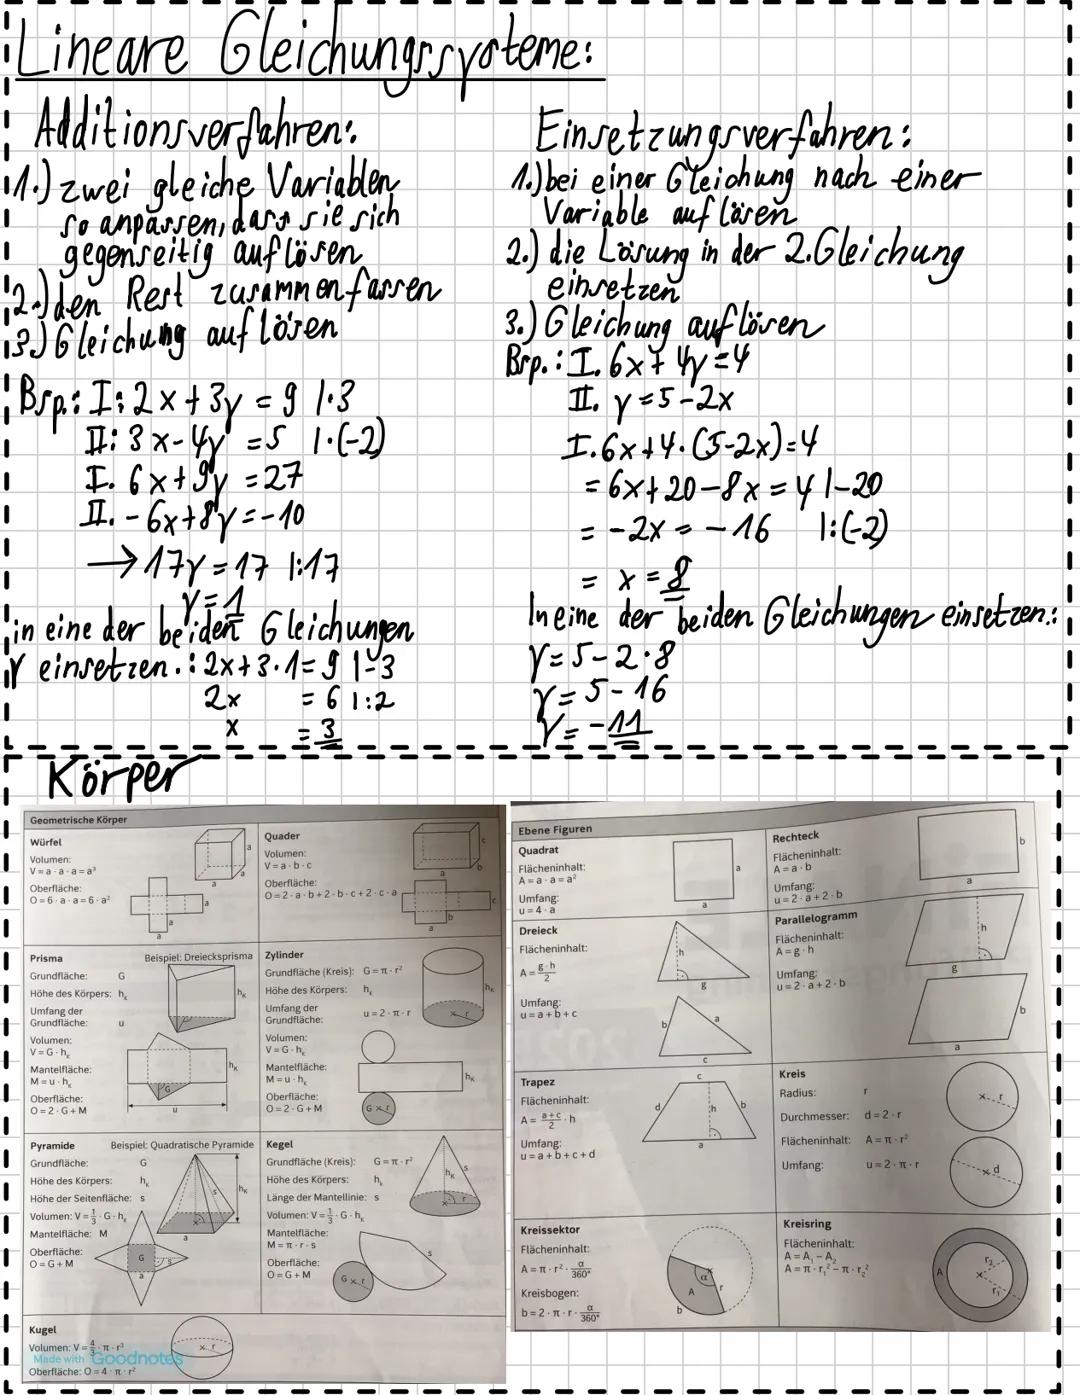 Lineare Gleichungssysteme:
Additionsverfahren:
1.) zwei gleiche Variablen
so anpassen, dass sie sich
gegenseitig auflösen
2.) den Rest zusammenfassen
3.) Gleichung auflösen
Bsp.: I: 2x+3y = 9 |·3
II: 3x-4y =5 |·(-2)
I. 6x+9y =27
II. -6x+8y=-10
→ 17y=17 |:17
y=1
in eine der beiden Gleichungen
y einsetzen.: 2x+3·1=9 |-3
2x = 6 |:2
x = 3
Einsetzungsverfahren:
1.) bei einer Gleichung nach einer
Variable auflösen
2.) die Lösung in der 2.Gleichung
einsetzen
3.) Gleichung auflösen
Bsp.: I. 6x+4y=4
II. y=5-2x
I. 6x+4·(5-2x)=4
= 6x+20-8x=4 |-20
= -2x = -16 |:(-2)
= x=8
In eine der beiden Gleichungen einsetzen.:
y=5-2·8
y=5-16
y=-11
Körper
Geometrische Körper
Würfel
Volumen:
V = a · a · a = a³
Oberfläche:
O = 6 · a · a = 6 · a²
a
a
a
a
a
a
Quader
Volumen:
V = a · b · c
Oberfläche:
O = 2 · a · b + 2 · b · c + 2 · c · a
c
b
a
c
b
a
Prisma
Beispiel: Dreiecksprisma
Grundfläche: G
Höhe des Körpers: hK
Umfang der
Grundfläche: u
Volumen:
V = G · hK
Mantelfläche:
M = u · hK
Oberfläche:
O = 2 · G + M
hK
hK
G
u
Zylinder
Grundfläche (Kreis): G = π · r²
Höhe des Körpers: hK
Umfang der
Grundfläche: u = 2 · π · r
Volumen:
V = G · hK
Mantelfläche:
M = u · hK
Oberfläche:
O = 2 · G + M
hK
r
hK
G r
Pyramide
Beispiel: Quadratische Pyramide
Grundfläche: G
Höhe des Körpers: hK
Höhe der Seitenfläche: s
Volumen: V = 1/3 · G · hK
Mantelfläche: M
Oberfläche:
O = G + M
s
hK
a
G
s
a
Kegel
Grundfläche (Kreis): G = π · r²
Höhe des Körpers: hK
Länge der Mantellinie: s
Volumen: V = 1/3 · G · hK
Mantelfläche:
M = π · r · s
Oberfläche:
O = G + M
hK
s
r
s
G r
Kugel
Volumen: V = 4/3 · π · r³
Made with Goodnotes
Oberfläche: O = 4 · π · r²
r
Ebene Figuren
Quadrat
Flächeninhalt:
A = a · a = a²
Umfang:
u = 4 · a
a
a
Rechteck
Flächeninhalt:
A = a · b
Umfang:
u = 2 · a + 2 · b
b
a
Dreieck
Flächeninhalt:
A = g · h / 2
Umfang:
u = a + b + c
h
g
b
a
c
Parallelogramm
Flächeninhalt:
A = g · h
Umfang:
u = 2 · a + 2 · b
h
g
b
a
Trapez
Flächeninhalt:
A = a + c / 2 · h
Umfang:
u = a + b + c + d
c
d
h
b
a
Kreis
Radius: r
Durchmesser: d = 2 · r
Flächeninhalt: A = π · r²
Umfang: u = 2 · π · r
r
d
Kreissektor
Flächeninhalt:
A = π · r² · α/360°
Kreisbogen:
b = 2 · π · r · α/360°
α
A
r
b
Kreisring
Flächeninhalt:
A = A₁ − A₂
A = π · r₁² − π · r₂²
A
r₂
r₁